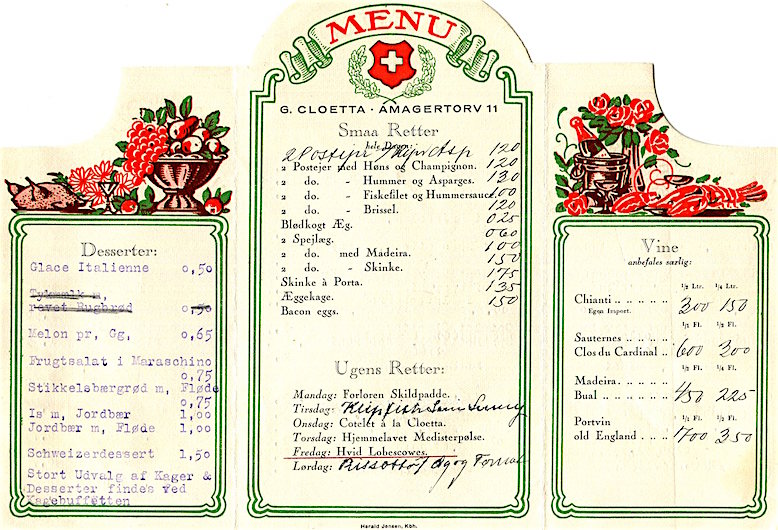 MENU
G. CLOETTA · AMAGERTORV 11
Smaa Retter
hele Dagen:
2 Postejer 120
2 Postejer med Høns og Champignon. 120
2 do. - Hummer og Asparges. 130
2 do. - Fiskefilet og Hummersauce 100
2 do. - Brissel. 120
Blødkogt Æg. 025
2 Spejlæg. 060
2 do. med Madeira. 100
2 do. - Skinke. 150
Skinke à Porta. 175
Æggekage. 135
Bacon eggs. 150
Ugens Retter:
Mandag: Forloren Skildpadde.
Tirsdag: Klipfisk
Onsdag: Cotelet à la Cloetta.
Torsdag: Hjemmelavet Medisterpølse.
Fredag: Hvid Lobescowes.
Lørdag: og Tomat
Desserter:
Glace Italienne 0,50
Tykmælk m,
revet Rugbrød 0,50
Melon pr, Gg, 0,65
Frugtsalat i Maraschino
0,75
Stikkelsbærgrød m, Fløde
0,75
Is m, Jordbær 1,00
Jordbær m, Fløde 1,00
Schweizerdessert 1,50
Stort Udvalg af Kager &
Desserter findes ved
Kagebuffetten
Vine
anbefales særlig:
1/2 Ltr. 1/4 Ltr.
Chianti . . . . . . 300 150
Egen Import.
1/1 Fl. 1/2 Fl.
Sauternes . . . . .
Clos du Cardinal . . 600 300
1/2 Fl. 1/4 Fl.
Madeira. . . . . .
Bual . . . . . . . 450 225
1/1 Fl. 1/2 Fl.
Portvin
old England . . . . 700 350
Harald Jensen, Kbh.